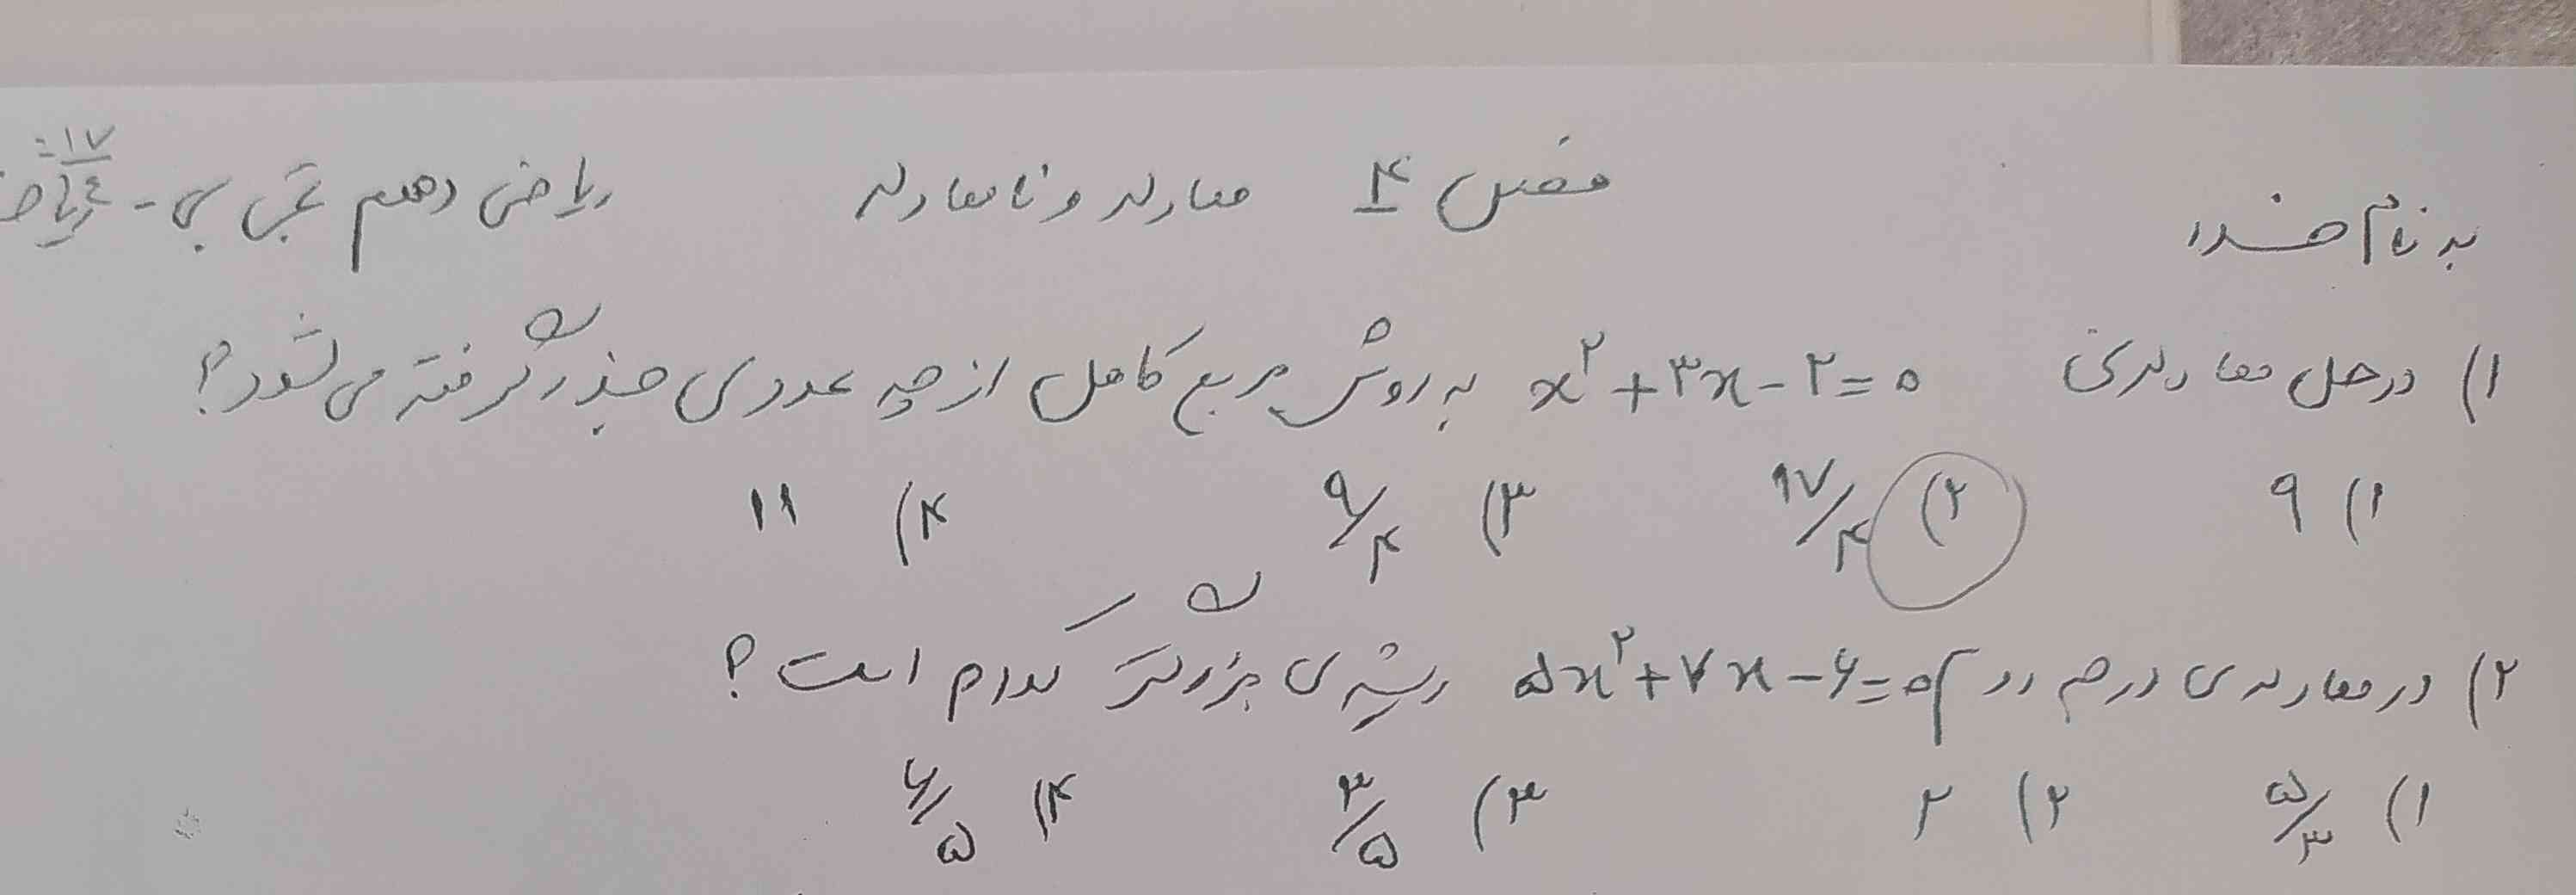 به نام خدا فصل ۴ معادله و نامعادله ریاضی دهم تجربی - ریاض
=۱۷/۴
۱) در حل معادله‌ی x²+۳x-۲=۰ به روش مربع کامل از چه عددی جذر گرفته می‌شود؟
۱) ۹ ۲) ۱۷/۴ ۳) ۹/۴ ۴) ۱۱
۲) در معادله‌ی درجه دوم ۵x²+۷x-۶=۰ ریشه‌ی بزرگتر کدام است؟
۱) ۵/۳ ۲) ۲ ۳) ۳/۵ ۴) ۶/۵